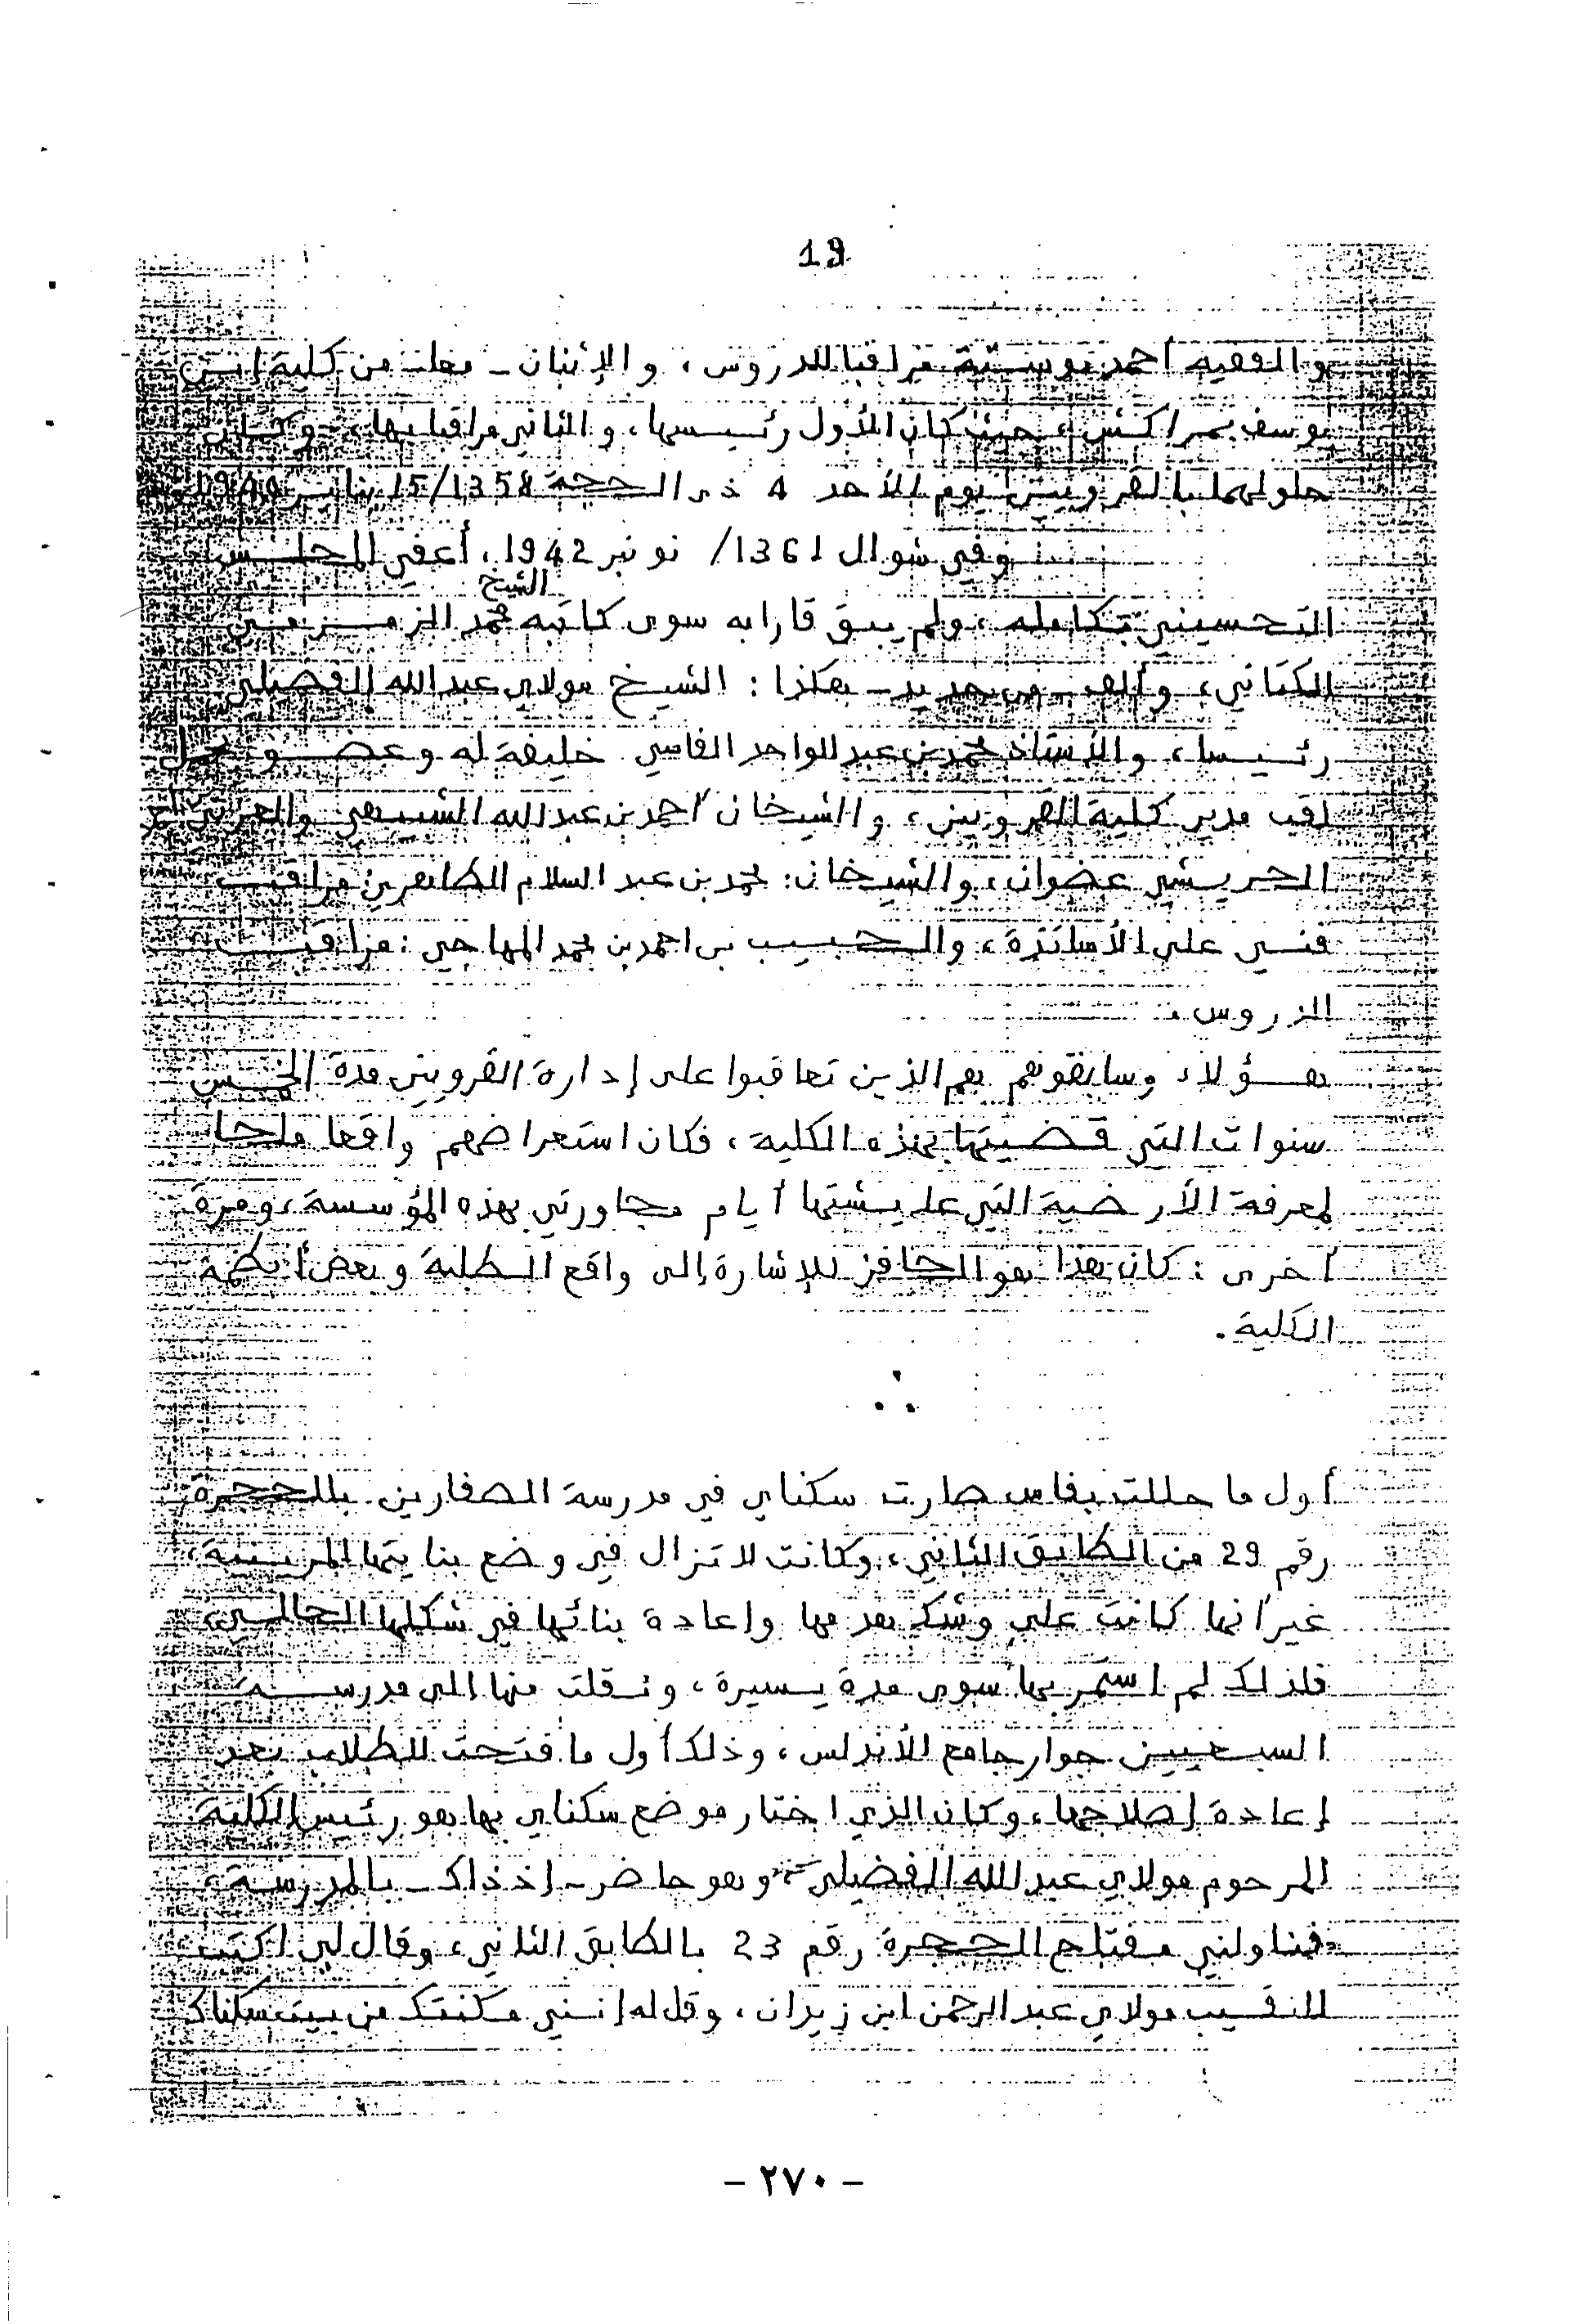 19
والفقيه احمد بوستة مراقبا للدروس، والإثنان - معا - من كلية ابن
يوسف بمراكش، حيث كان الأول رئيسها، والثاني مراقبا بها، وكان
حلولهما بالقرويين يوم الأحد 4 ذي الحجة 1358/15 يناير 1940
وفي شوال 1361/ نونبر 1942، أعفي المجلس
التحسيني بكامله، ولم يبق قارا به سوى كاتبه الشيخ محمد الزمزمي
الكتاني، وألف - من جديد - هكذا: الشيخ مولاي عبد الله الفضيلي
رئيسا، والأستاذ محمد بن عبد الواحد الفاسي خليفة له وعضو يحمل
لقب مدير كلية القرويين، والشيخان احمد بن عبد الله الشبيهي والعرائشي
الحريشي عضوان، والشيخان: محمد بن عبد السلام الطاهري: مراقب
فني على الأساتذة، والحبيب بن احمد بن محمد المهاجي: مراقب
الدروس.
هؤلاء وسابقوهم هم الذين تعاقبوا على إدارة القرويين مدة الخمس
سنوات التي قضيتها بهذه الكلية، فكان استعراضهم واقعا ملحا
لمعرفة الأرضية التي عايشتها أيام مجاورتي بهذه المؤسسة، ومرة
أخرى: كان هذا هو الحافز للإشارة إلى واقع الطلبة وبعض أنظمة
الكلية.
أول ما حللت بفاس صارت سكناي في مدرسة الصفارين بالحجرة
رقم 29 من الطابق الثاني، وكانت لا تزال في وضع بنايتها المرينية،
غير أنها كانت على وشك هدمها وإعادة بنائها في شكلها الحالي،
فلذلك لم استمر بها سوى مدة يسيرة، ونقلت منها إلى مدرسة
السبعيين جوار جامع الأندلس، وذلك أول ما فتحت للطلاب بعد
إعادة إصلاحها، وكان الذي اختار موضع سكناي بها هو رئيس الكلية
المرحوم مولاي عبد الله الفضيلي، وهو حاضر - إذ ذاك - بالمدرسة،
فناولني مفتاح الحجرة رقم 23 بالطابق الثاني، وقال لي اكتب
للنقيب مولاي عبد الرحمن ابن زيدان، وقل له إنني مكنتك من بيت سكناك
- ٢٧٠ -